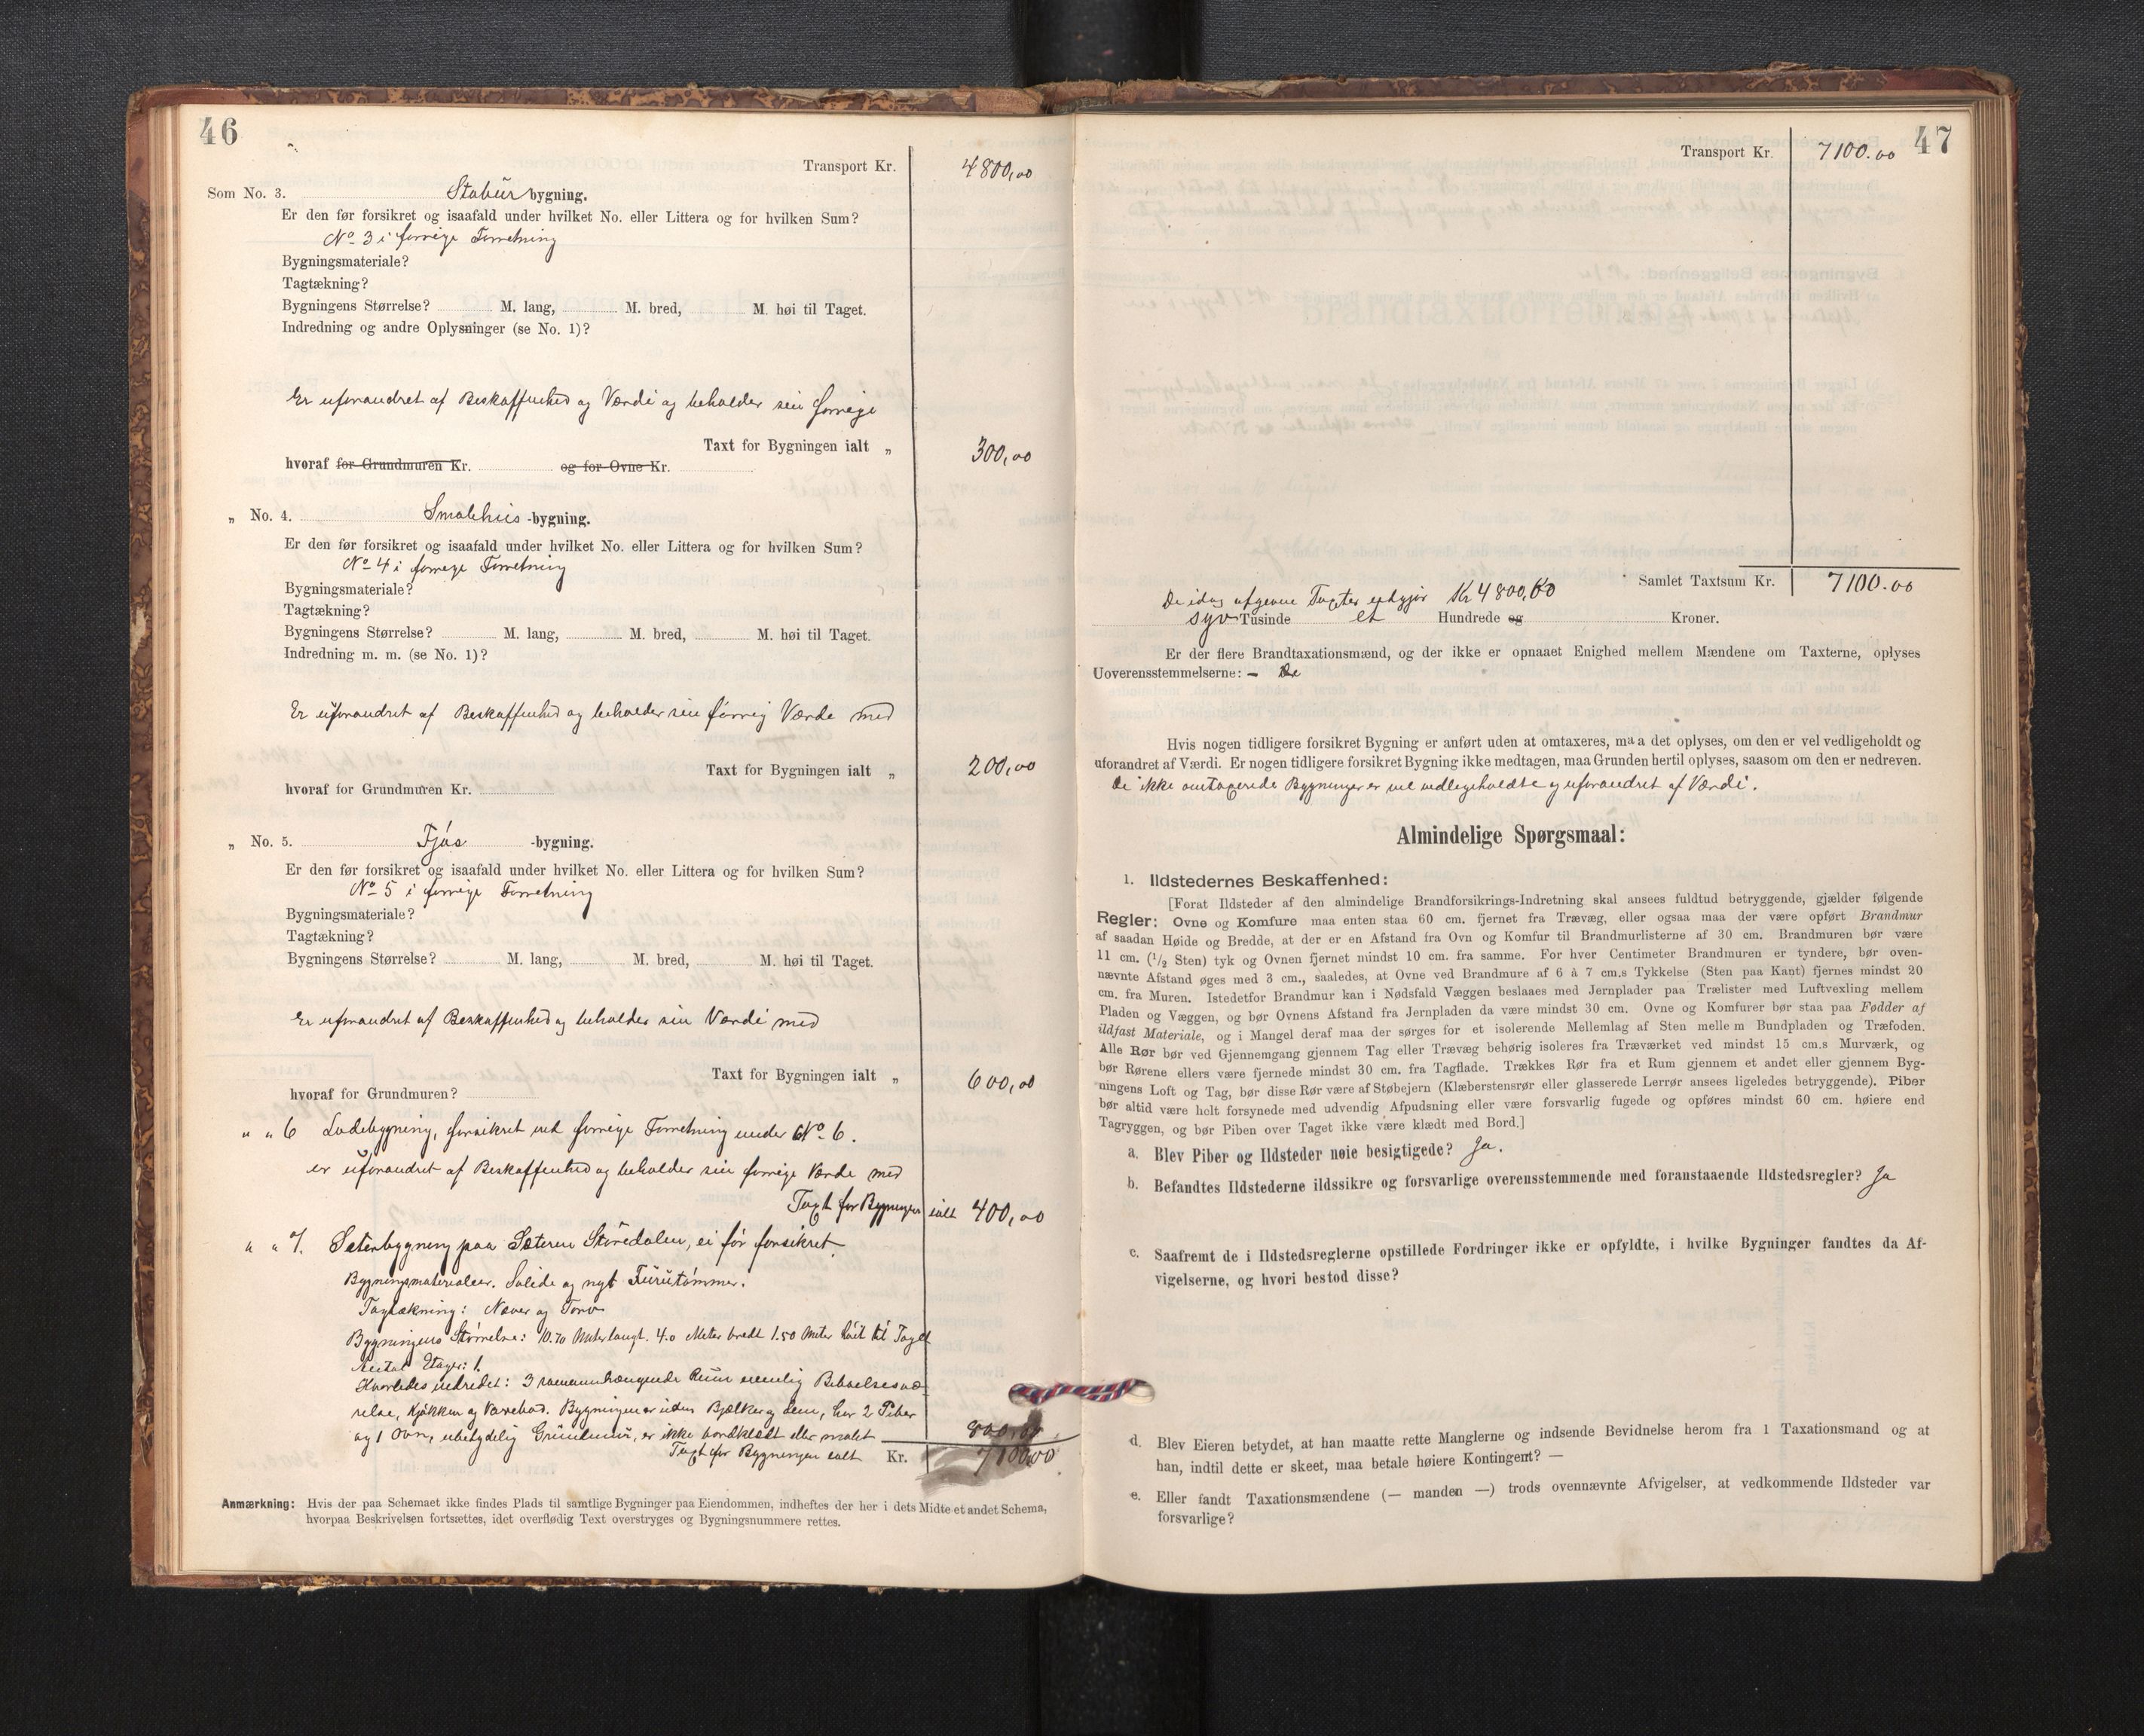 46
Transport Kr. 4800,00
Som No. 3. Stabür bygning.
Er den før forsikret og isaafald under hvilket No. eller Littera og for hvilken Sum?
No 3 i forrige Forretning
Bygningsmateriale?
Tagtækning?
Bygningens Størrelse? M. lang, M. bred, M. høi til Taget.
Indredning og andre Oplysninger (se No. 1)?
Er uforandret af Beskaffenhed og Værdi og beholder sin forrige
Taxt for Bygningen ialt „ 300,00
hvoraf for Grundmuren Kr. og for Ovne Kr.
„ No. 4. Smalehus -bygning.
Er den før forsikret og isaafald under hvilket No. eller Littera og for hvilken Sum?
No 4 i forrige Forretning
Bygningsmateriale?
Tagtækning?
Bygningens Størrelse? M. lang, M. bred, M. høi til Taget.
Indredning m. m. (se No. 1)?
Er uforandret af Beskaffenhed og beholder sin forrig Værde med
Taxt for Bygningen ialt „ 200,00
hvoraf for Grundmuren Kr.
„ No. 5. Fjós -bygning.
Er den før forsikret og isaafald under hvilket No. eller Littera og for hvilken Sum?
No 5 i forrige Forretning
Bygningsmateriale?
Tagtækning?
Bygningens Størrelse? M. lang, M. bred, M. høi til Taget.
Er uforandret af Beskaffenhed og beholder sin Værdi med
Taxt for Bygningen ialt „ 600,00
hvoraf for Grundmuren?
„ „ 6 Ladebygning, forsikret ved forrige Forretning under No 6.
er uforandret af Beskaffenhed og beholder sin forrige Værde med
Taxt for Bygningen ialt 400,00
„ „ 7. Sæterbygning paa Sæteren Störedalen, ei før forsikret
Bygningsmaterialier. Solide og nyt Furutømmer.
Tagtækning: Næver og Torv
Bygningens Størrelse: 10.70 Meter langt. 4.0 Meter bredt 1.50 Meter høit til Taget
Antal Etager: 1.
Hvorledes indredet: 3 sammenhængende Rum nemlig Beboelsesvæ-
relse, Kjøkken og Vævebod. Bygningen er uden Bjælker og dem, har 2 Piber
og 1 Ovn, ubetydelig Grundmur, er ikke bordklædt eller malet 800,00
Taxt for Bygningen ialt Kr. 7100,00
Anmærkning: Hvis der paa Schemaet ikke findes Plads til samtlige Bygninger paa Eiendommen, indheftes der her i dets Midte et andet Schema,
hvorpaa Beskrivelsen fortsættes, idet overflødig Text overstryges og Bygningsnummere rettes.
47
Transport Kr. 7100.00
Samlet Taxtsum Kr. 7100.00
De idag afgivne Taxter udgjør Kr 4800,00
syv Tusinde et Hundrede og Kroner.
Er der flere Brandtaxationsmænd, og der ikke er opnaaet Enighed mellem Mændene om Taxterne, oplyses
Uoverensstemmelserne: — De
Hvis nogen tidligere forsikret Bygning er anført uden at omtaxeres, maa det oplyses, om den er vel vedligeholdt og
uforandret af Værdi. Er nogen tidligere forsikret Bygning ikke medtagen, maa Grunden hertil oplyses, saasom om den er nedreven.
De ikke omtaxerede Bygninger er vel vedligeholdte og uforandret af Værdi.
Almindelige Spørgsmaal:
1. Ildstedernes Beskaffenhed:
[Forat Ildsteder af den almindelige Brandforsikrings-Indretning skal ansees fuldtud betryggende, gjælder følgende
Regler: Ovne og Komfure maa enten staa 60 cm. fjernet fra Trævæg, eller ogsaa maa der være opført Brandmur
af saadan Høide og Bredde, at der er en Afstand fra Ovn og Komfur til Brandmurlisterne af 30 cm. Brandmuren bør være
11 cm. (1/2 Sten) tyk og Ovnen fjernet mindst 10 cm. fra samme. For hver Centimeter Brandmuren er tyndere, bør oven-
nævnte Afstand øges med 3 cm., saaledes, at Ovne ved Brandmure af 6 à 7 cm.s Tykkelse (Sten paa Kant) fjernes mindst 20
cm. fra Muren. Istedetfor Brandmur kan i Nødsfald Væggen beslaaes med Jernplader paa Trælister med Luftvexling mellem
Pladen og Væggen, og bør Ovnens Afstand fra Jernpladen da være mindst 30 cm. Ovne og Komfurer bør staa paa Fødder af
ildfast Materiale, og i Mangel deraf maa der sørges for et isolerende Mellemlag af Sten mellem Bundpladen og Træfoden.
Alle Rør bør ved Gjennemgang gjennem Tag eller Trævæg behørig isoleres fra Træværket ved mindst 15 cm.s Murværk, og
bør Rørene ellers være fjernede mindst 30 cm. fra Tagflade. Trækkes Rør fra et Rum gjennem et andet eller gjennem Byg-
ningens Loft og Tag, bør disse Rør være af Støbejern (Klæberstensrør eller glasserede Lerrør ansees ligeledes betryggende). Piber
bør altid være helt forsynede med udvendig Afpudsning eller være forsvarlig fugede og opføres mindst 60 cm. høiere end
Tagryggen, og bør Piben over Taget ikke være klædt med Bord.]
a. Blev Piber og Ildsteder nøie besigtigede? Ja.
b. Befandtes Ildstederne ildssikre og forsvarlige overensstemmende med foranstaaende Ildstedsregler? Ja
c. Saafremt de i Ildstedsreglerne opstillede Fordringer ikke er opfyldte, i hvilke Bygninger fandtes da Af-
vigelserne, og hvori bestod disse?
d. Blev Eieren betydet, at han maatte rette Manglerne og indsende Bevidnelse herom fra 1 Taxationsmand og at
han, indtil dette er skeet, maa betale høiere Kontingent? —
e. Eller fandt Taxationsmændene (— manden —) trods ovennævnte Afvigelser, at vedkommende Ildsteder var
forsvarlige?